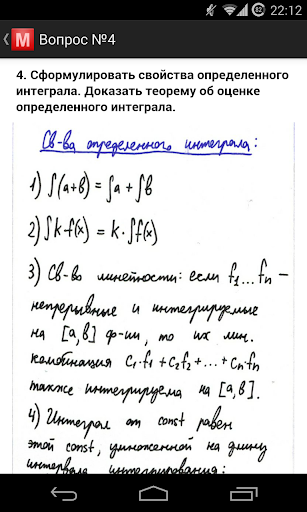 22:12
M Вопрос №4
4. Сформулировать свойства определенного
интеграла. Доказать теорему об оценке
определенного интеграла.
Св-ва определенного интеграла:
1) ∫(a+b) = ∫a + ∫b
2) ∫k·f(x) = k·∫f(x)
3) Св-во линейности: если f₁...fn -
непрерывные и интегрируемые
на [a,b] ф-ии, то их лин.
комбинация c₁·f₁ + c₂f₂ + ... + cnfn
также интегрируема на [a,b].
4) Интеграл от const равен
этой const, умноженной на длину
интервала интегрирования: